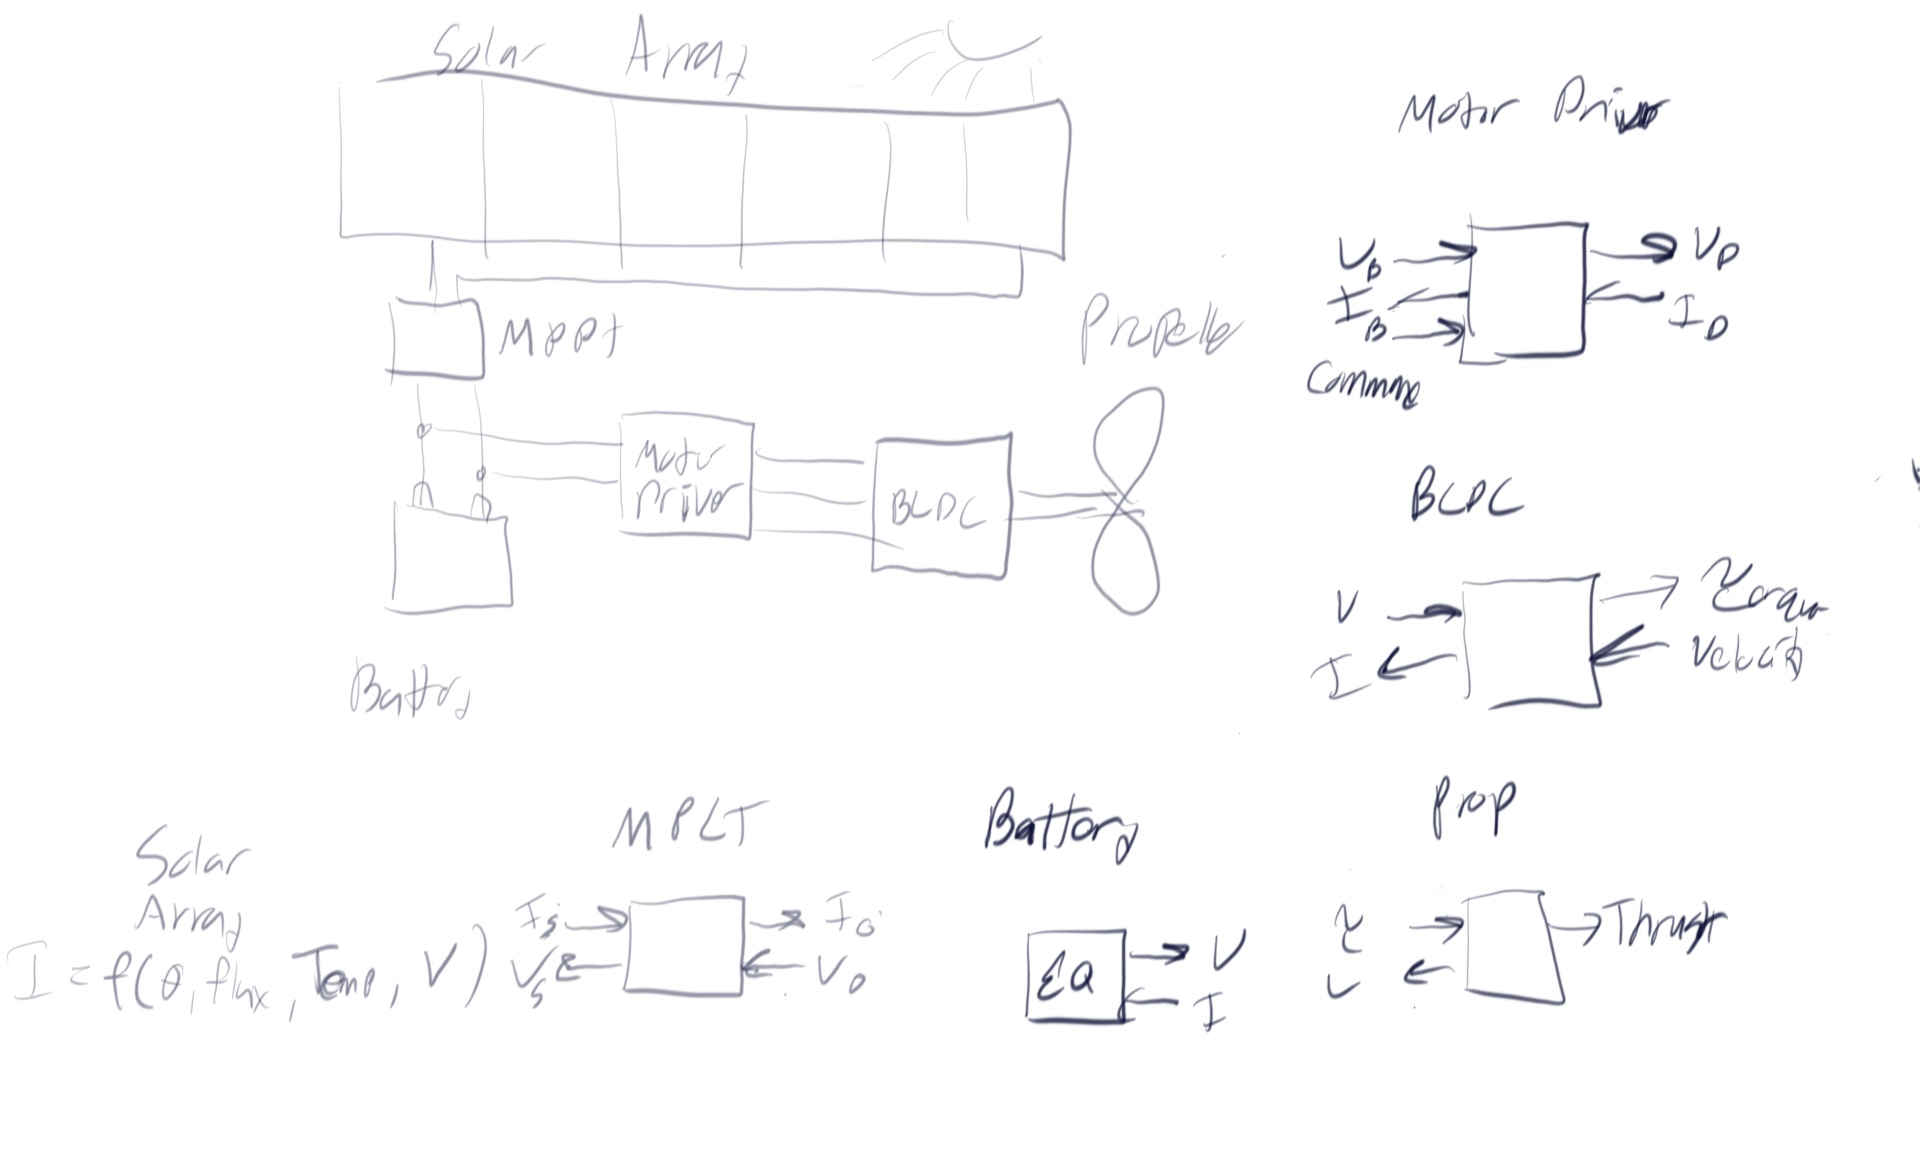 Solar Array
MPPT
Propeller
Motor
Driver
BLDC
Battery
Motor Driver
V_B
I_B
V_D
I_D
BLDC
V
I
Torque
Velocity
Solar
Array
I = f(θ, flux, Temp, V)
MPLT
I_s
V_s
I_o
V_o
Battery
ΣQ
V
I
Prop
τ
Thrust